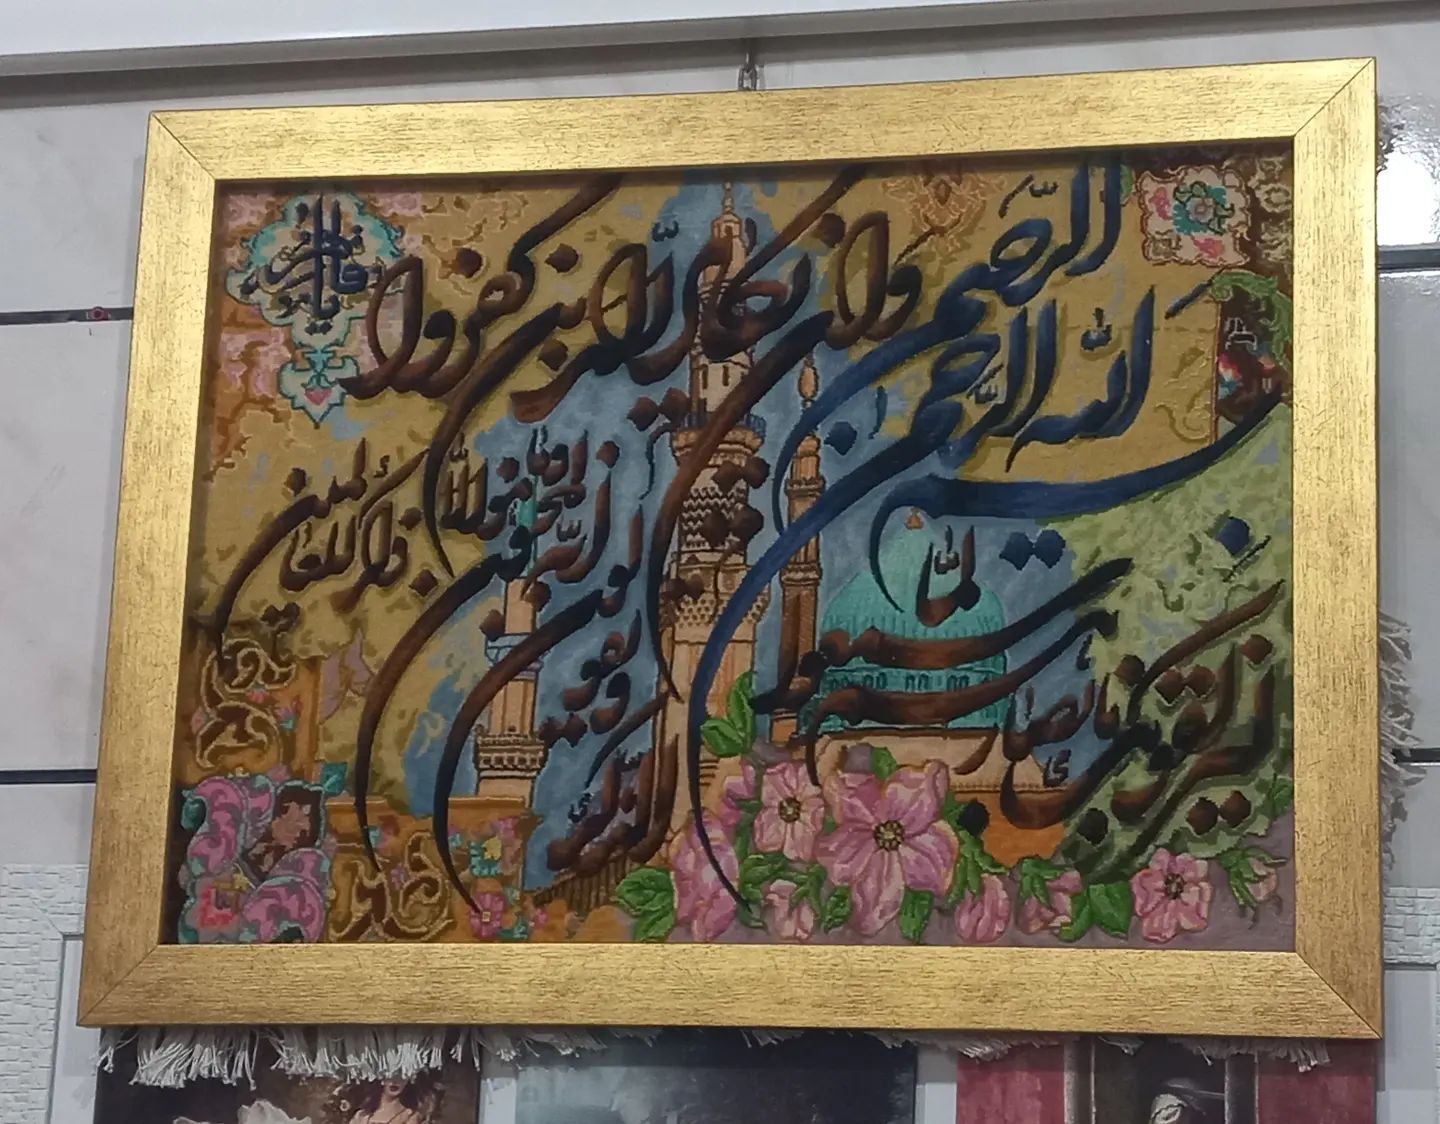 بسم الله الرحمن الرحيم
وان يكاد الذين كفروا
ليزلقونك بابصارهم لما سمعوا
الذكر ويقولون انه لمجنون وما هو الا
ذكر للعالمين
يا فاطمة الزهرا